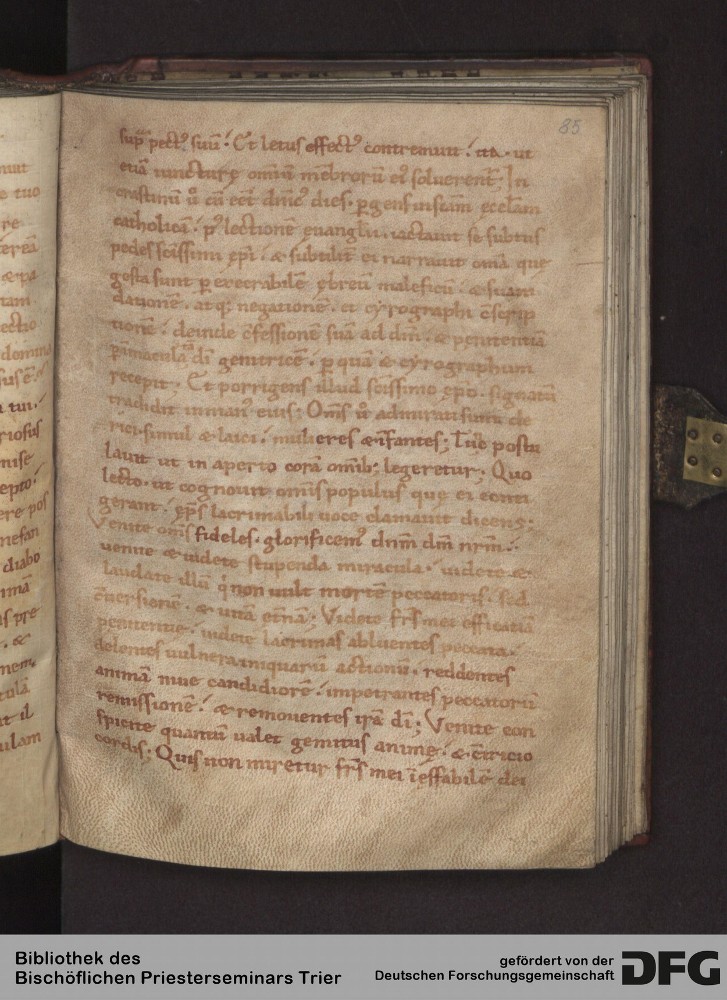 85
sup pect' suū. Et letus effect' contremuit. ita. ut
etiā iuncturę omniū mēbrorū ei' soluerent. In
crastinū ū cū eēt dnic' dies. pgens in scam ęcclam
catholicā. p' lectionē euanglii. iactauit se subtus
pedes scissimi ępi. & subtilit ei narrauit omia que
gesta sunt p execrabilē ębreū maleficū. & suam
dationē. atq; negationē. et cyrographi cscrip
tionē. deinde cfessionē suā ad dm. & penitentiā
p inmaculatā di genitricē. p quā & cyrographum
recepit. Et porrigens illud scissimo ępo. signatū
tradidit in man' eius; Oms ū admirati sunt cle
rici simul & laici. mulieres & infantes; Tūc postu
lauit ut in aperto corā omib; legeretur. Quo
lecto. ut cognouit omis populus que ei conti
gerant. ęps lacrimabili uoce clamauit dicens;
Venite oms fideles. glorificem' dnm dm nrm.
uenite & uidete stupenda miracula. uidete &
laudate illū qi non uult mortē peccatoris. sed
cuersionē. & uitā etnā; Videte frs mei efficatiā
penitentie. uidete lacrimas abluentes peccata.
delentes uulnera iniquarū actionū. reddentes
animā niue candidiorē. impetrantes peccatorū
remissionē. & remouentes irā di; Venite con
spicite quantū ualet gemitus animę. & ctricio
cordis; Quis non miretur frs mei ineffabilē dei
Bibliothek des
Bischöflichen Priesterseminars Trier
gefördert von der
Deutschen Forschungsgemeinschaft
DFG